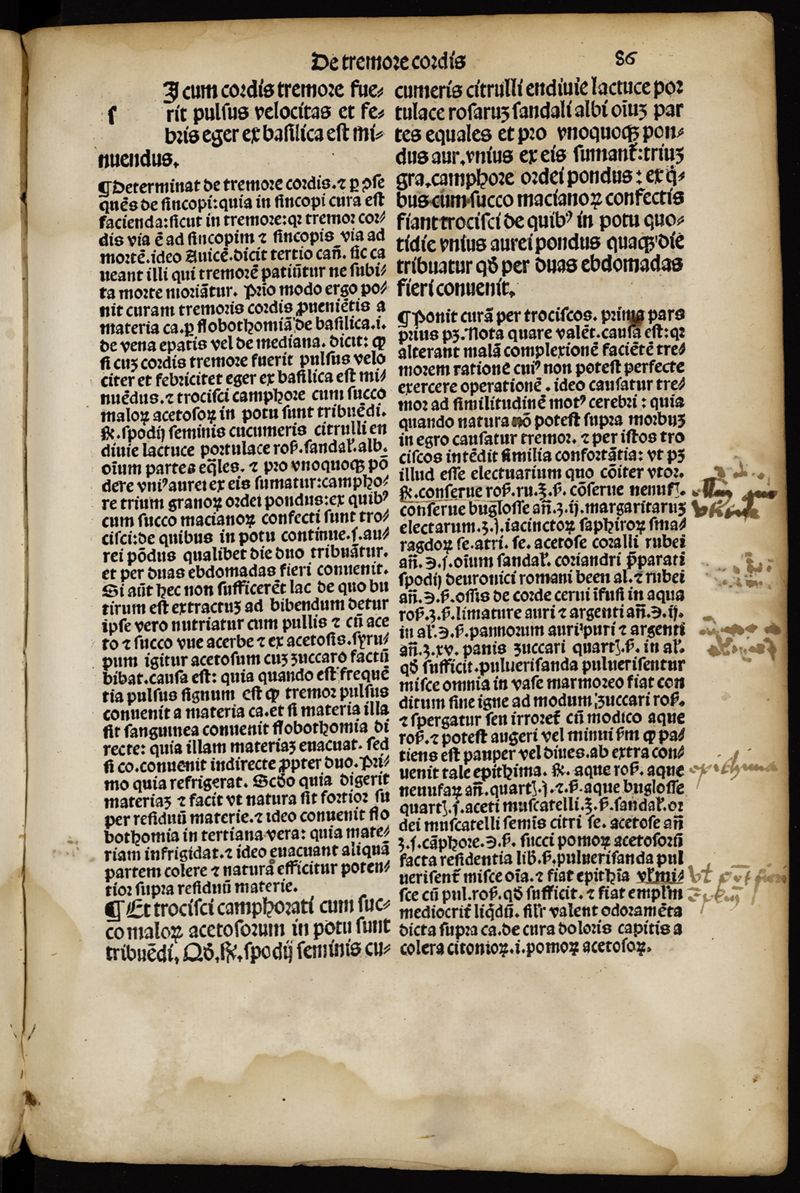 De tremore cordis
86
I cum cordis tremore fue⸗
ſ rit pulſus velocitas et fe⸗
bris eger ex baſilica eſt mi⸗
nuendus.
¶Determinat de tremore cordis.⁊ ꝑ ↄſe
quēs de ſincopi:quia in ſincopi cura eſt
facienda:ſicut in tremore:qꝛ tremor cor⸗
dis via ē ad ſincopim ⁊ ſincopis via ad
mortē.ideo Auicē.dicit tertio cañ. ſic ca
ueant illi qui tremorē patiūtur ne ſubi⸗
ta morte moriātur. Prīo modo ergo po⸗
nit curam tremoris cordis ꝓueniētis a
materia ca.ꝑ flobothomiā de baſilica.i.
de vena epatis vel de mediana. dicit: ꝙ
ſi cuꝫ cordis tremore fuerit pulſus velo
citer et febricitet eger ex baſilica eſt mi⸗
nuēdus.⁊ trociſci camphore cum ſucco
maloꝝ acetoſoꝝ in potu ſunt tribuēdi.
℞.ſpodij ſeminis cucumeris citrulli en
diuie lactuce portulace roſ.ſandal.alb.
oīum partes eq̄les. ⁊ pro vnoquoqꝫ pō
dere vniꝰ aurei ex eis ſumatur:campho⸗
re trium granoꝝ ordei pondus:ex quibꝰ
cum ſucco macianoꝝ confecti ſunt tro⸗
ciſci:de quibus in potu continue.ſ.au⸗
rei pōdus qualibet die duo tribuātur.
et per duas ebdomadas fieri conuenit.
Si aūt hec non ſufficerēt lac de quo bu
tirum eſt extractuꝫ ad bibendum detur
ipſe vero nutriatur cum pullis ⁊ cū ace
to ⁊ ſucco vue acerbe ⁊ ex acetoſis.ſyru⸗
pum igitur acetoſum cuꝫ zuccaro factū
bibat.cauſa eſt: quia quando eſt frequē
tia pulſus ſignum eſt ꝙ tremor pulſus
conuenit a materia ca.et ſi materia illa
ſit ſanguinea conuenit flobothomia di
recte: quia illam materiaꝫ euacuat. ſed
ſi co.conuenit indirecte ꝓpter duo.Pri⸗
mo quia refrigerat. Scd̄o quia digerit
materiaꝫ ⁊ facit vt natura ſit fortior ſu
per reſiduū materie.⁊ ideo conuenit flo
bothomia in tertiana vera: quia mate⸗
riam infrigidat.⁊ ideo euacuant aliquā
partem colere ⁊ naturā efficitur poten⸗
tior ſupra reſiduū materie.
¶Et trociſci camphorati cum ſuc⸗
co maloꝝ acetoſorum in potu ſunt
tribuēdi. Qd̄.℞.ſpodij ſeminis cu⸗
cumeris citrulli endiuie lactuce por
tulace roſaruꝫ ſandali albi oīuꝫ par
tes equales et pro vnoquoqꝫ pon⸗
dus aur.vnius ex eis ſumant̄:triuꝫ
gra.camphore ordei pondus: ex q̄⸗
bus cum ſucco macianoꝝ confectis
fiant trociſci de quibꝰ in potu quo⸗
tidie vnius aurei pondus quaqꝫ die
tribuatur qd̄ per duas ebdomadas
fieri conuenit.
¶Ponit curā per trociſcos. prima pars
prius pꝫ.Nota quare valēt.cauſa eſt:qꝛ
alterant malā complexionē faciētē tre⸗
morem ratione cuiꝰ non poteſt perfecte
exercere operationē . ideo cauſatur tre⸗
mor ad ſimilitudinē motꝰ cerebri : quia
quando natura nō poteſt ſupra morbuꝫ
in egro cauſatur tremor. ⁊ per iſtos tro
ciſcos intēdit ſimilia confortātia: vt pꝫ
illud eſſe electuarium quo cōiter vtor.
℞.conſerue roſ.ru.ʒ.ß. cōſerue nenuf.
conſerue bugloſſe añ.ʒ.ij.margaritaruꝫ
electarum.ʒ.j.iacinctoꝝ ſaphiroꝝ ſma⸗
ragdoꝝ ſe.atri. ſe. acetoſe coralli rubei
añ.℈.ſ.oīum ſandal. coriandri p̄parati
ſpodij deuronici romani been al.⁊ rubei
añ.℈.ß.oſſis de corde cerui īfuſi in aqua
roſ.ʒ.ß.limature auri ⁊ argenti añ.℈.ij.
in al.℈.ß.pannorum auri puri ⁊ argenti
añ.ʒ.xv. panis zuccari quart.ß. in al.
qd̄ ſufficit.puluerisanda pulueriſentur
miſce omnia in vaſe marmoreo fiat con
ditum ſine igne ad modum zuccari roſ.
⁊ ſpergatur ſeu irroret̄ cū modico aque
roſ.⁊ poteſt augeri vel minui ẜm ꝙ pa⸗
tiens eſt pauper vel diues.ab extra con⸗
uenit tale epithima. ℞. aque roſ. aque
nenufaꝝ añ.quart.j.⁊.ß.aque bugloſſe
quart.ſ.aceti muſcatelli.ʒ.ß.ſandal.or
dei muſcatelli ſemīs citri ſe. acetoſe añ
ʒ.ſ.cāphore.℈.ß. ſucci pomoꝝ acetoſorū
facta reſidentia lib.ß.pulueriſanda pul
ueriſent̄ miſce oīa.⁊ fiat epithīa vl̄ mi⸗
ſce cū pul.roſ.qd̄ ſufficit. ⁊ fiat emplr̄m
mediocrit̄ liq̄dū. ſilr̄ valent odoramēta
dicta ſupra ca.de cura doloris capitis a
colera citonioꝝ.i.pomoꝝ acetoſoꝝ.
epithima